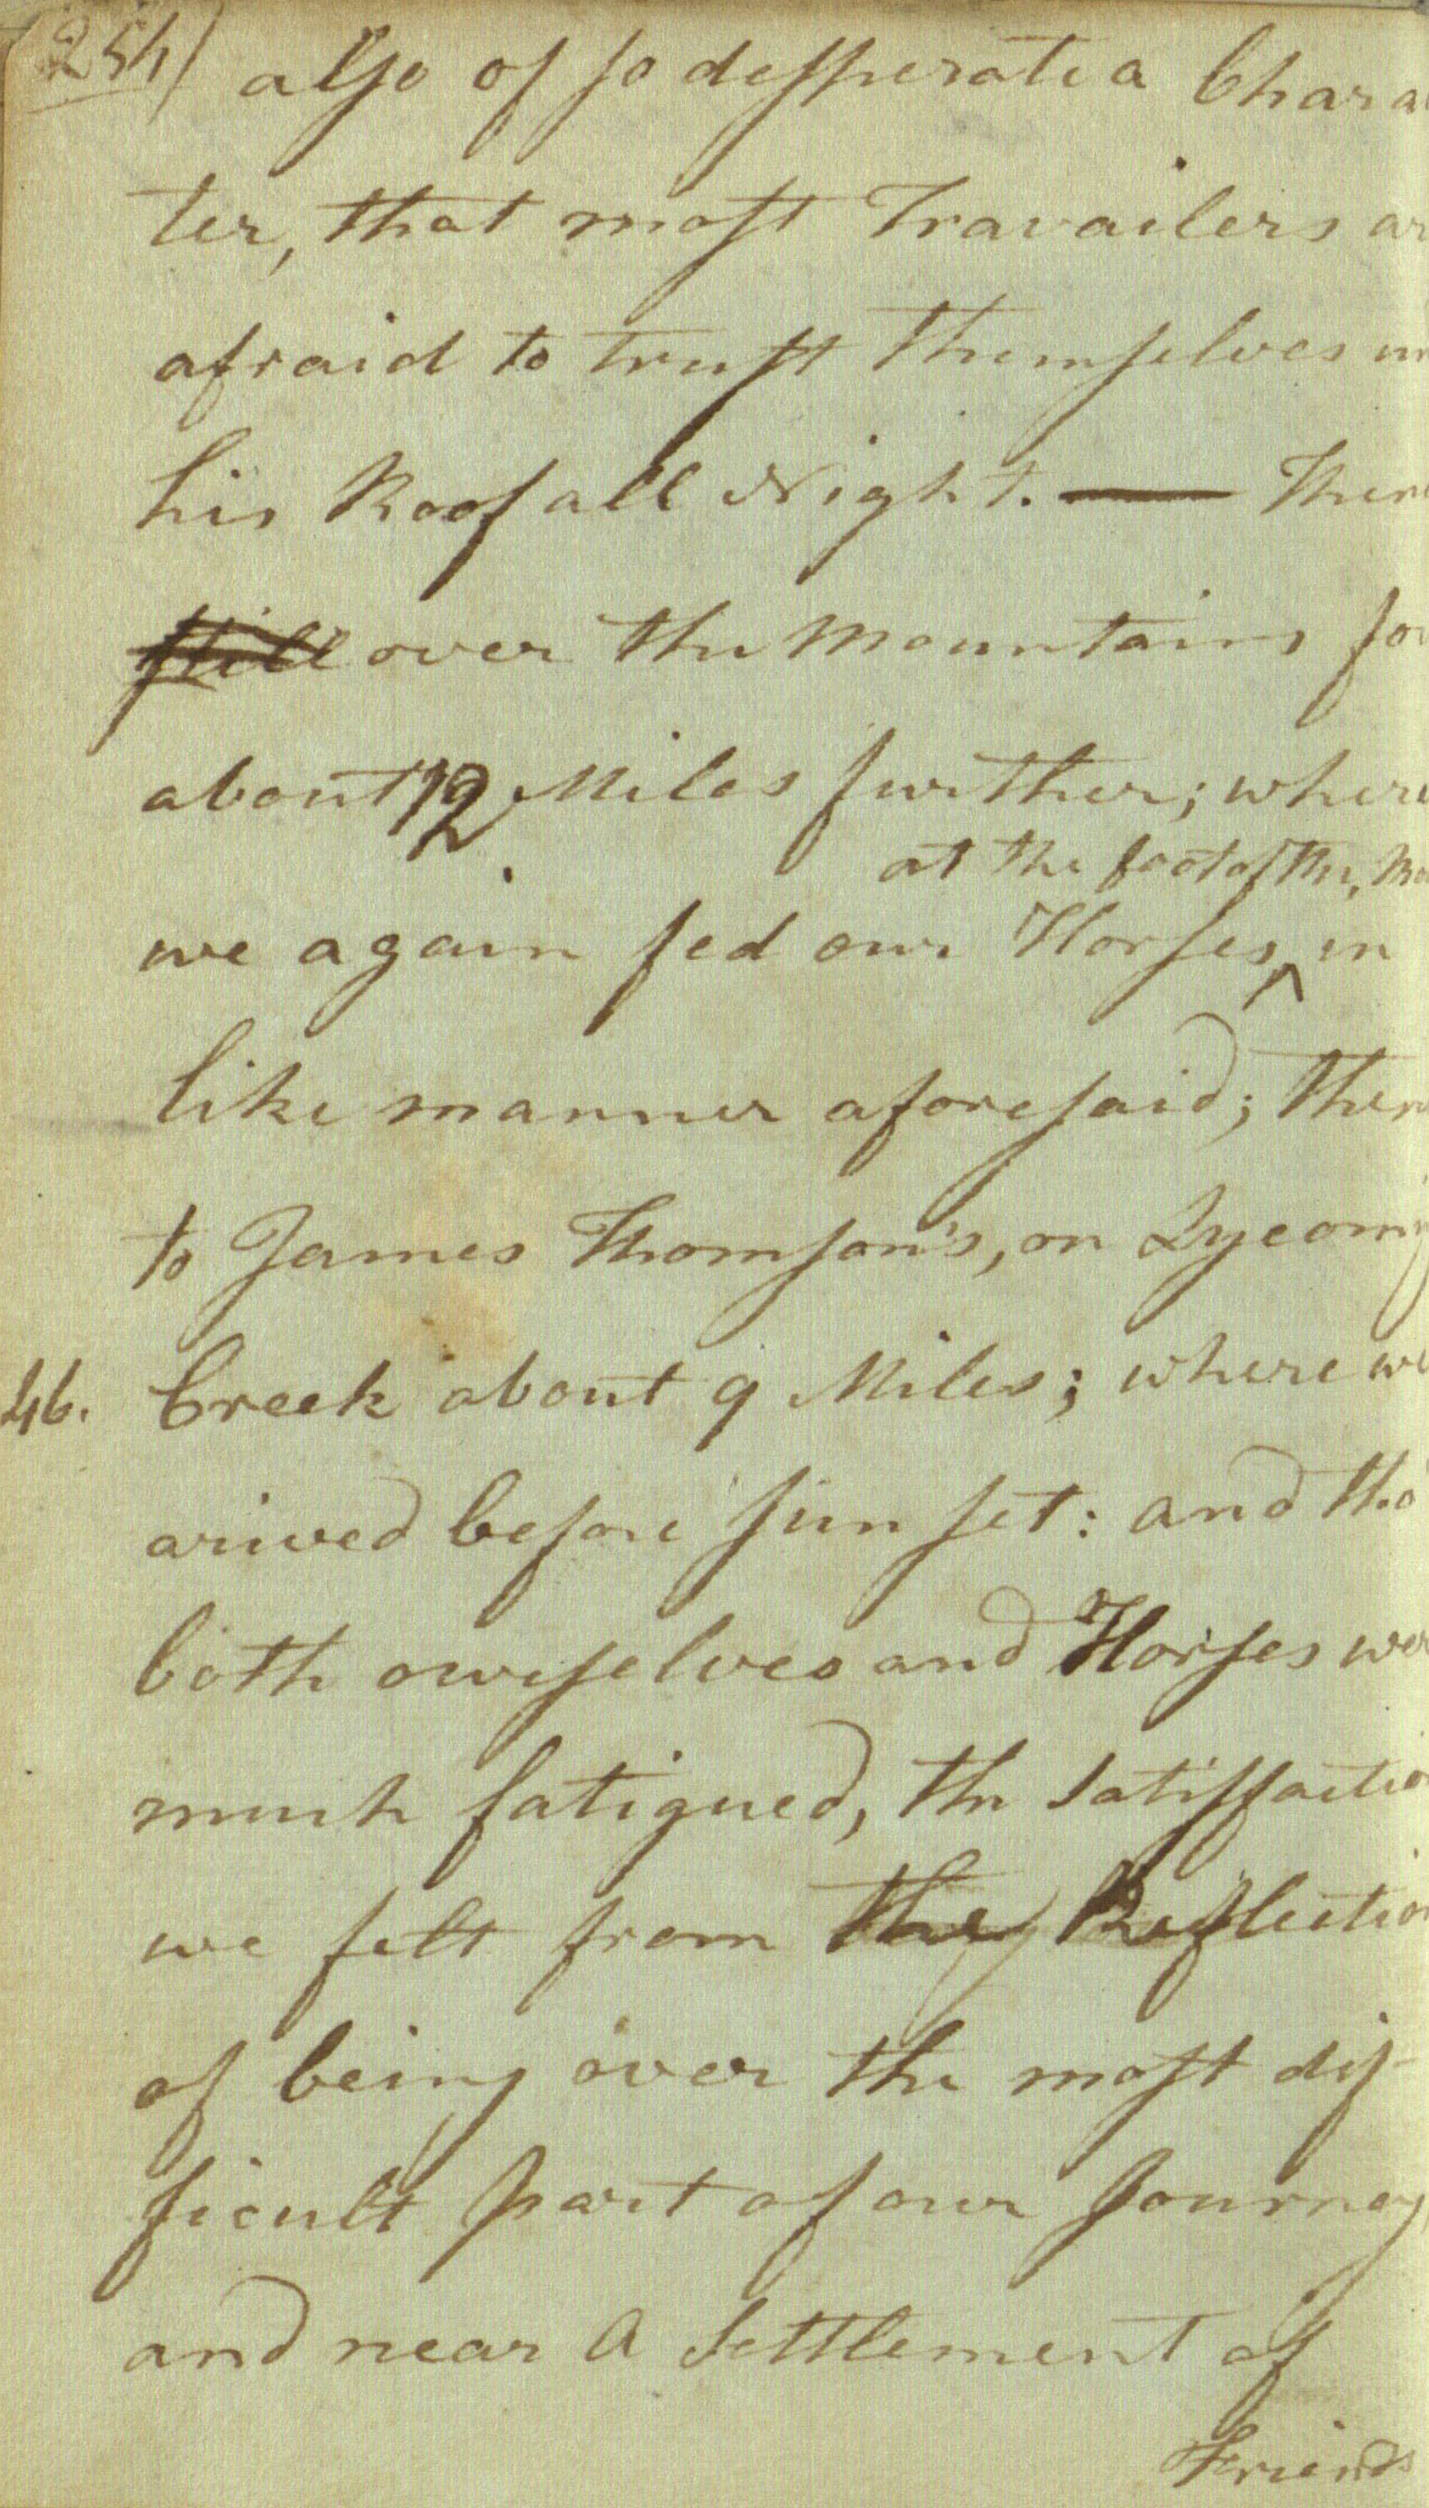 254)
also of so desperate a Chara
ter, that most Travailers ar
afraid to trust themselves un
his Roof all Night. — Then
still over the Mountains for
about 12 Miles further; where
at the foot of the, Mo
we again fed our Horses ^ in
like manner aforesaid; then
to James Thomson's, on Lycomi
46. Creek about 9 Miles; where we
arived before sun set: and tho'
both ourselves and Horses wer
much fatigued, the satisfactio
we felt from the Reflectio
of being over the most dif-
ficult part of our Journey,
and near a Settlement of
Friends